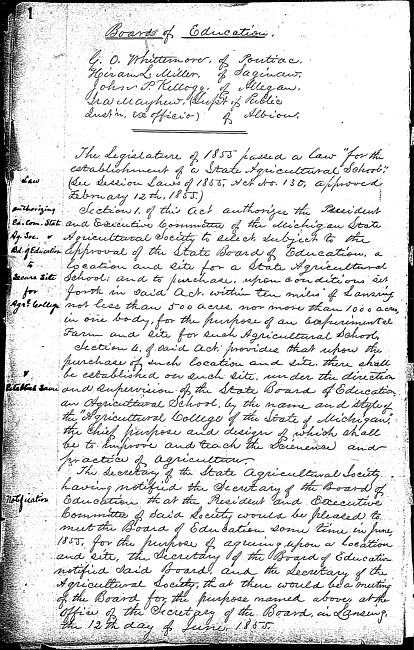 1
Board of Education.
G. O. Whittemore, of Pontiac.
Hiram L. Miller, of Saginaw.
John P. Kellogg, of Allegan.
Ira Mayhew, (Supt of Public
Instn. ex officio) of Albion.
The Legislature of 1855 passed a law "for the
establishment of a State Agricultural School."
(See Session Laws of 1855, Act No. 130, approved
February 12th, 1855.)
Law
authorizing
Ex. Com. Stat
Ag. Soc. &
Bd. of Education
to
Secure Site
for
Agrl. College
Section 1. of this Act authorizes the President
and Executive Committee of the Michigan State
Agricultural Society to select subject to the
approval of the State Board of Education, a
location and site for a State Agricultural
School; and to purchase, upon conditions set
forth in said Act, within ten miles of Lansing
not less than 500 acres, nor more than 1000 acres
in one body, for the purpose of an experimental
Farm and site for such Agricultural School.
Section 4, of said Act provides that upon the
purchase of such location and site there shall
&
Establish Same
be established on such site, under the direction
and supervision of the State Board of Education
an Agricultural School, by the name and style of
the "Agricultural College of the State of Michigan,"
the chief purpose and design of which shall
be to improve and teach the Science and
practice of agriculture.
The Secretary of the State Agricultural Society
Notification
having notified the Secretary of the Board of
Education that the President and Executive
Committee of said Society would be pleased to
meet the Board of Education some time in June,
1855, for the purpose of agreeing upon a location
and site, the Secretary of the Board of Education
notified said Board, and the Secretary of the
Agricultural Society, that there would be a meeting
of the Board for the purpose named above, at the
office of the Secretary of the Board, in Lansing,
the 12th day of June, 1855.